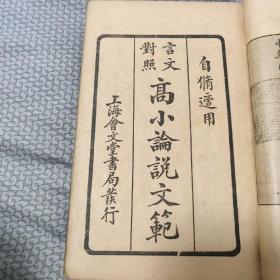 自脩適用
言文對照
高小論説文範
上海會文堂書局發行